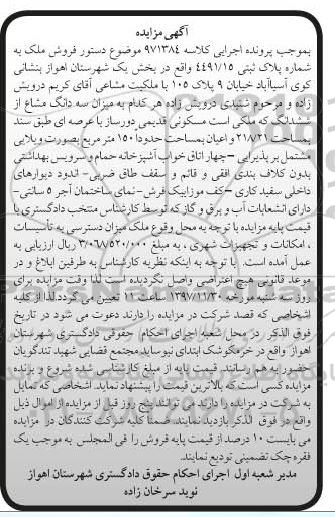 آگهی مزایده
بموجب پرونده اجرایی کلاسه ۹۷۱۳۸۴ موضوع دستور فروش ملک به
شماره پلاک ثبتی ۴۴۹۱/۱۵ واقع در بخش یک شهرستان اهواز بنشانی
کوی آسیاآباد خیابان ۹ پلاک ۱۰۵ با ملکیت مشاعی آقای کریم درویش
زاده و مرحوم شنیدی درویش زاده هر کدام به میزان سه دانگ مشاع از
ششدانگ که ملکی است مسکونی قدیمی دورساز با عرصه ای طبق سند
بمساحت ۲۱۸/۲۱ و اعیان بمساحت حدوداً ۱۵۰ متر مربع بصورت ویلایی
مشتمل بر پذیرایی – چهار اتاق خواب آشپزخانه حمام و سرویس بهداشتی
بدون کلاف بندی افقی و قائم و سقف طاق ضربی – اندود دیوارهای
داخلی سفید کاری – کف موزاییک فرش – نمای ساختمان آجر ۵ سانتی –
دارای انشعابات آب و برق و گاز که توسط کارشناس منتخب دادگستری با
قیمت پایه مزایده با توجه به محل وقوع ملک میزان دسترسی به تأسیسات
، امکانات و تجهیزات شهری ، به مبلغ ۳/۰۶۸/۵۲۰/۰۰۰ ریال ارزیابی به
عمل آمده است. با توجه به اینکه نظریه کارشناس به طرفین ابلاغ و در
موعد قانونی هیچ اعتراضی واصل نگردیده است لذا وقت مزایده برای
روز سه شنبه مورخه ۱۳۹۷/۱۱/۳۰ ساعت ۱۱ تعیین می گردد لذا از کلیه
اشخاصی که قصد شرکت در مزایده را دارند دعوت می شود در تاریخ
فوق الذکر در محل شعبه اجرای احکام حقوقی دادگستری شهرستان
اهواز واقع در خرمکوشک ابتدای نیوساید مجتمع قضایی شهید تندگویان
حضور به هم رسانند. قیمت پایه از مبلغ کارشناسی شده شروع و برنده
مزایده کسی است که بالاترین قیمت را پیشنهاد نماید. اشخاصی که تمایل
به شرکت در مزایده را دارند می توانند پنج روز قبل از مزایده از اموال ذیل
واقع در فوق الذکر بازدید نمایند. ضمناً کلیه شرکت کنندگان در مزایده
می بایست ۱۰ درصد از قیمت پایه فروش را فی المجلس به موجب یک
فقره چک تضمینی تودیع نمایند.
مدیر شعبه اول اجرای احکام حقوق دادگستری شهرستان اهواز
نوید سرخان زاده